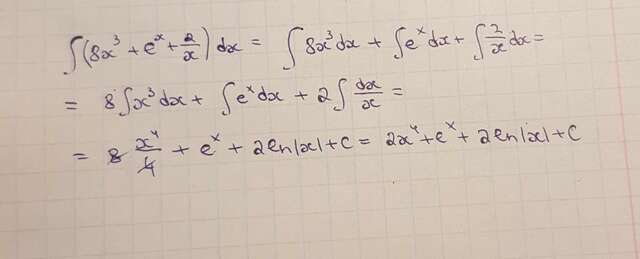 ∫(8x³ + eˣ + 2/x) dx = ∫8x³dx + ∫eˣdx + ∫2/x dx =
= 8∫x³dx + ∫eˣdx + 2∫dx/x =
= 8 x⁴/4 + eˣ + 2ln|x| + C = 2x⁴ + eˣ + 2ln|x| + C